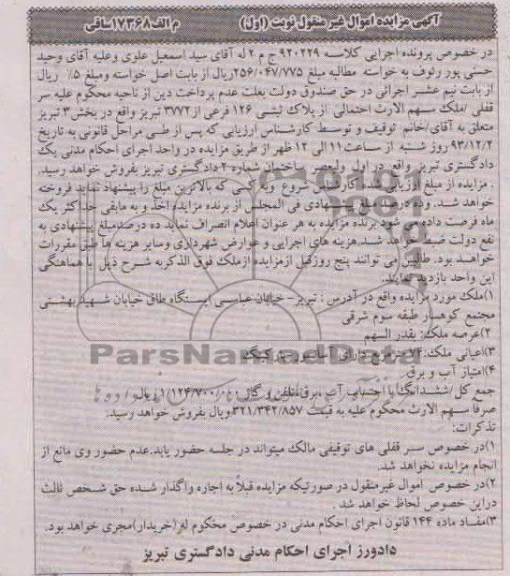 آگهی مزایده اموال غیر منقول نوبت (اول) م الف ۱۷۳۶۸ساقی
در خصوص پرونده اجرایی کلاسه ۹۲۰۲۲۹ ج م ۲ له آقای سید اسمعیل علوی وعلیه آقای وحید
حسی پور رئوف به خواسته مطالبه مبلغ ۲۵۶/۰۴۷/۷۷۵ریال از بابت اصل خواسته ومبلغ ۵٪ ریال
از بابت نیم عشر اجرائی در حق صندوق دولت بعلت عدم پرداخت دین از ناحیه محکوم علیه سر
قفلی /ملک سهم الارث احتمالی از پلاک ثبتی ۱۲۶ فرعی از۳۷۷۲ تبریز واقع در بخش ۳ تبریز
متعلق به آقای/خانم توقیف و توسط کارشناس ارزیابی که پس از طی مراحل قانونی به تاریخ
۹۳/۱۲/۲ روز شنبه از ساعت۱۱ الی ۱۲ ظهر از طریق مزایده در واحد اجرای احکام مدنی یک
دادگستری تبریز واقع در اول ولیعصر ساختمان شماره ۲ دادگستری تبریز بفروش خواهد رسید.
. مزایده از مبلغ ارزیابی شده کارشناس شروع وبه کسی که بالاترین مبلغ را پیشنهاد نماید فروخته
خواهد شد. وده درصد مبلغ پیشنهادی فی المجلس از برنده مزایده اخذ و به مابقی حداکثر یک
ماه فرصت داده می شود برنده مزایده به هر عنوان اعلام انصراف نماید ده درصدمبلغ پیشنهادی به
نفع دولت ضبط خواهد شد.هزینه های اجرایی و عوارض شهرداری وسایر هزینه ها طبق مقررات
خواهد بود. طالبین می توانند پنج روزقبل ازمزایده ازملک فوق الذکربه شرح ذیل با هماهنگی
این واحد بازدید نمایند.
۱)ملک مورد مزایده واقع در آدرس : تبریز- خیابان عباسی ایستگاه طاق خیابان شهید بهشتی
مجتمع کوهسار طبقه سوم شرقی
۲)عرصه ملک: بقدر السهم
۳)اعیانی ملک: مترمربع دارای آسانسور پارکینگ
۴)امتیاز آب و برق
جمع کل/ششدانگ با احتساب آب ،برق،تلفن و گاز ۱/۱۲۴/۷۰۰/۰۰۰ریال
صرفا سهم الارث محکوم علیه به قیمت ۳۲۱/۳۴۲/۸۵۷ریال بفروش خواهد رسید.
تذکرات:
۱)در خصوص سر قفلی های توقیفی مالک میتواند در جلسه حضور یابد.عدم حضور وی مانع از
انجام مزایده نخواهد شد.
۲)در خصوص اموال غیرمنقول در صورتیکه مزایده قبلاً به اجاره واگذار شده حق شخص ثالث
دراین خصوص لحاظ خواهد شد .
۳)مفاد ماده ۱۴۴ قانون اجرای احکام مدنی در خصوص محکوم له (خریدار)مجری خواهد بود.
دادورز اجرای احکام مدنی دادگستری تبریز
ParsNamadData